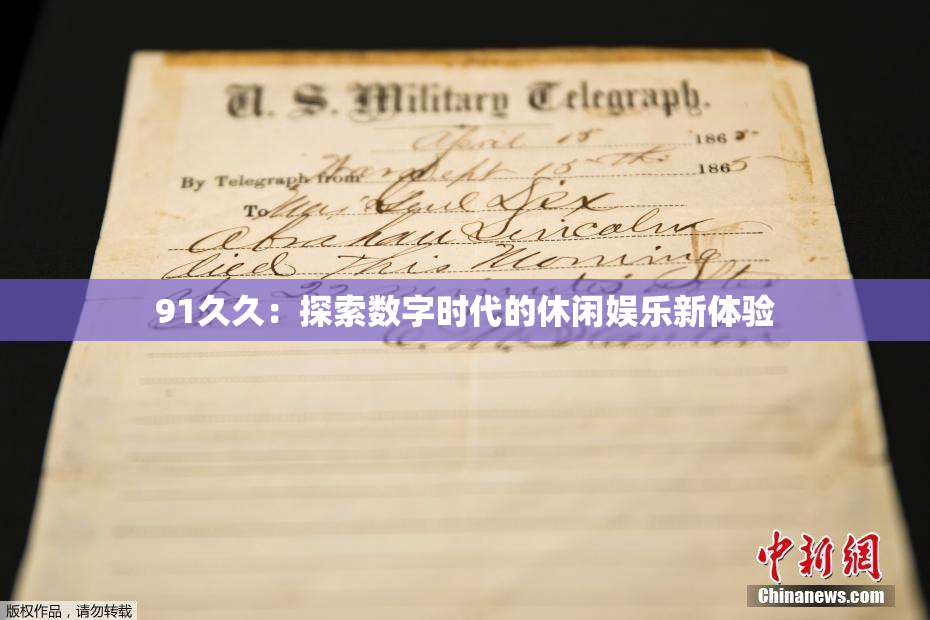 U. S. Military Telegraph.
April 15 1865
By Telegraph from War Dept 15th 1865
To Maj Genl Dix
Abraham Lincoln
died This Morning
at 22 minutes after
91久久：探索数字时代的休闲娱乐新体验
E. M. Stanton
中新網
Chinanews.com
版权作品，请勿转载